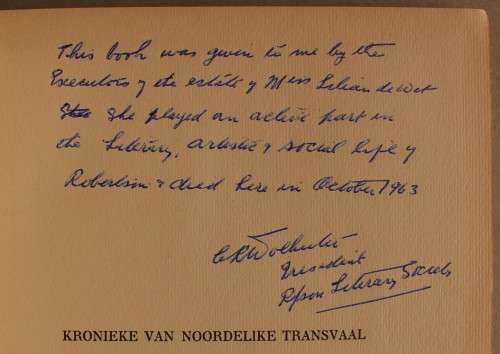 This book was given to me by the
Executors of the estate of Miss Lilian de Wet
She played an active part in
the Literary, artistic & social life of
Robertson & died here in October 1963
President
Literary
KRONIEKE VAN NOORDELIKE TRANSVAAL